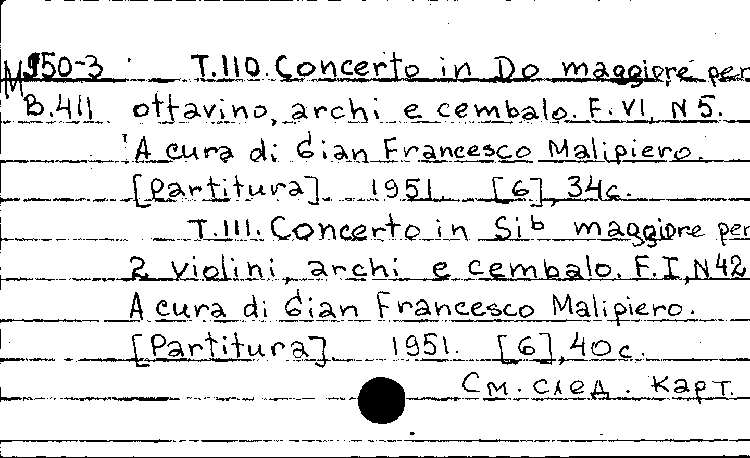 М950-3 T.110. Concerto in Do maggiore per
B.411 ottavino, archi e cembalo. F. VI, N 5.
A cura di Gian Francesco Malipiero.
[Partitura]. 1951. [6], 34c.
T.111. Concerto in Sib maggiore per
2 violini, archi e cembalo. F. I, N 42
A cura di Gian Francesco Malipiero.
[Partitura]. 1951. [6], 40c.
См. след. карт.